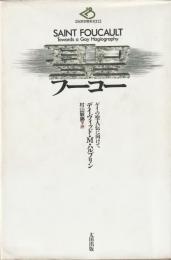 SAINT FOUCAULT
Towards a Gay Hagiography
聖
フーコー
ゲイの聖人伝に向けて
デイヴィッド・M・ハルプリン
村山敏勝 訳
太田出版